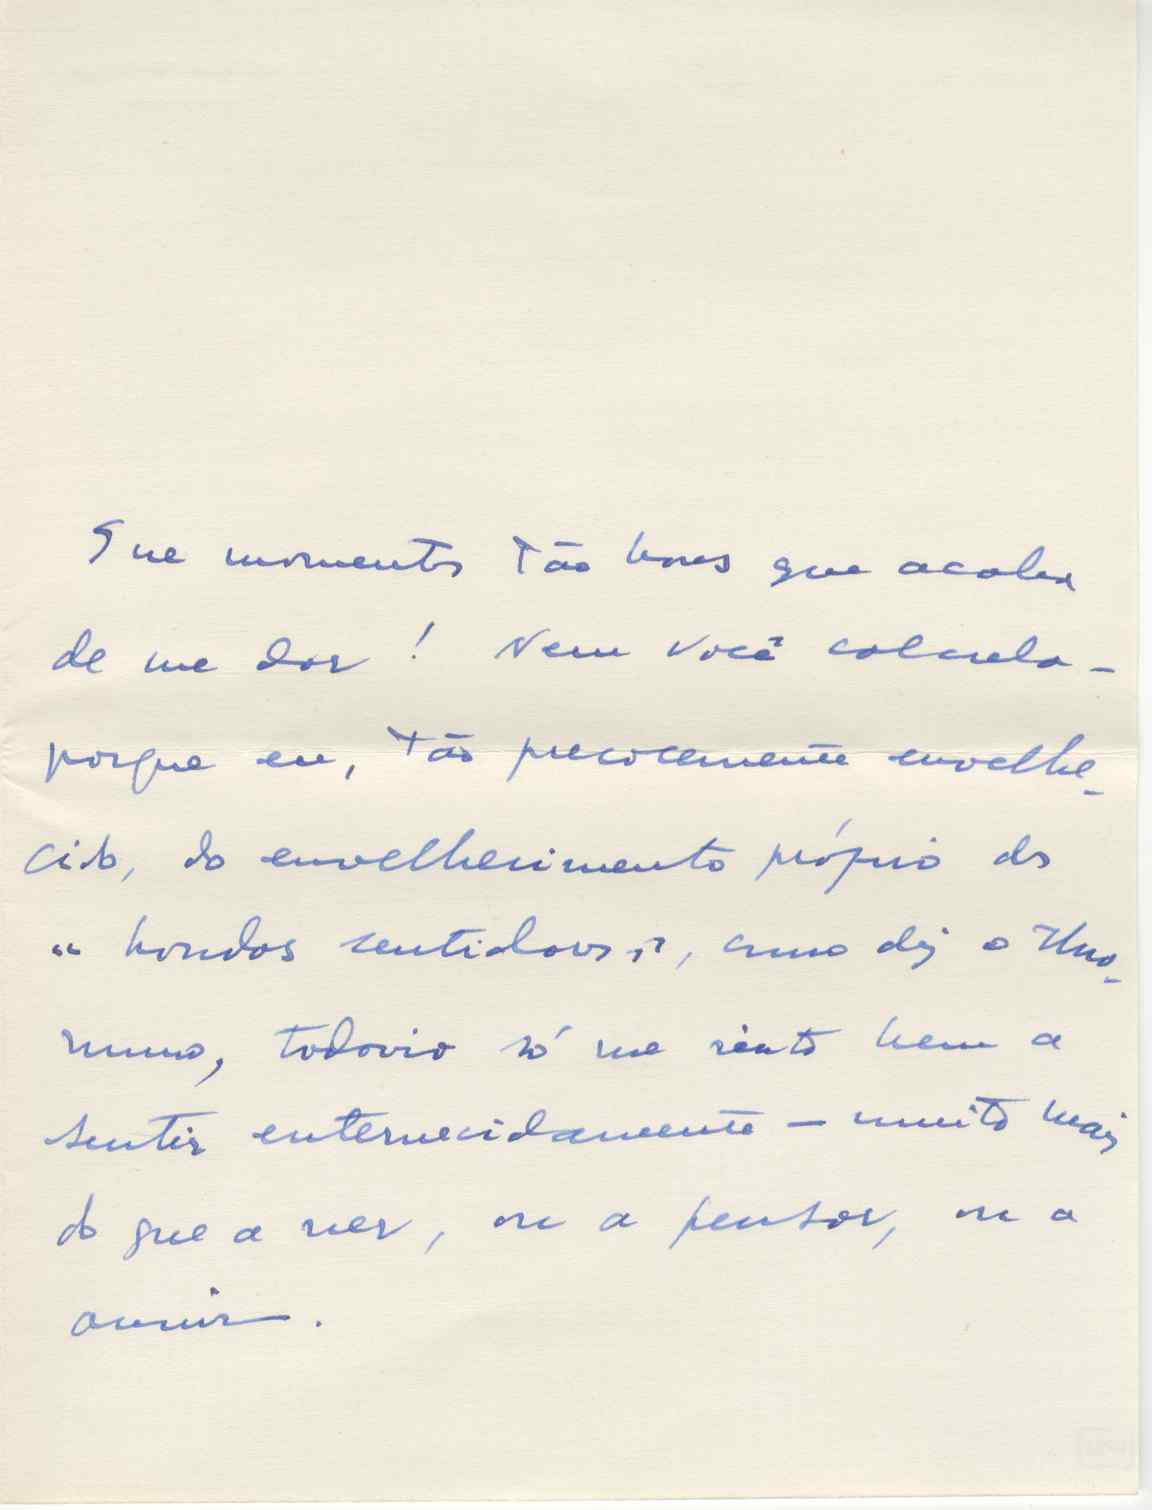 Que momentos tão bons que acaba
de me dar! Nem você calcula –
porque eu, tão precocemente envelhe-
cido, do envelhecimento próprio do
"hondos sentidores", como diz o Una-
muno, todavia só me sinto bem a
sentir enternecidamente – muito mais
do que a ver, ou a pensar, ou a
ouvir.